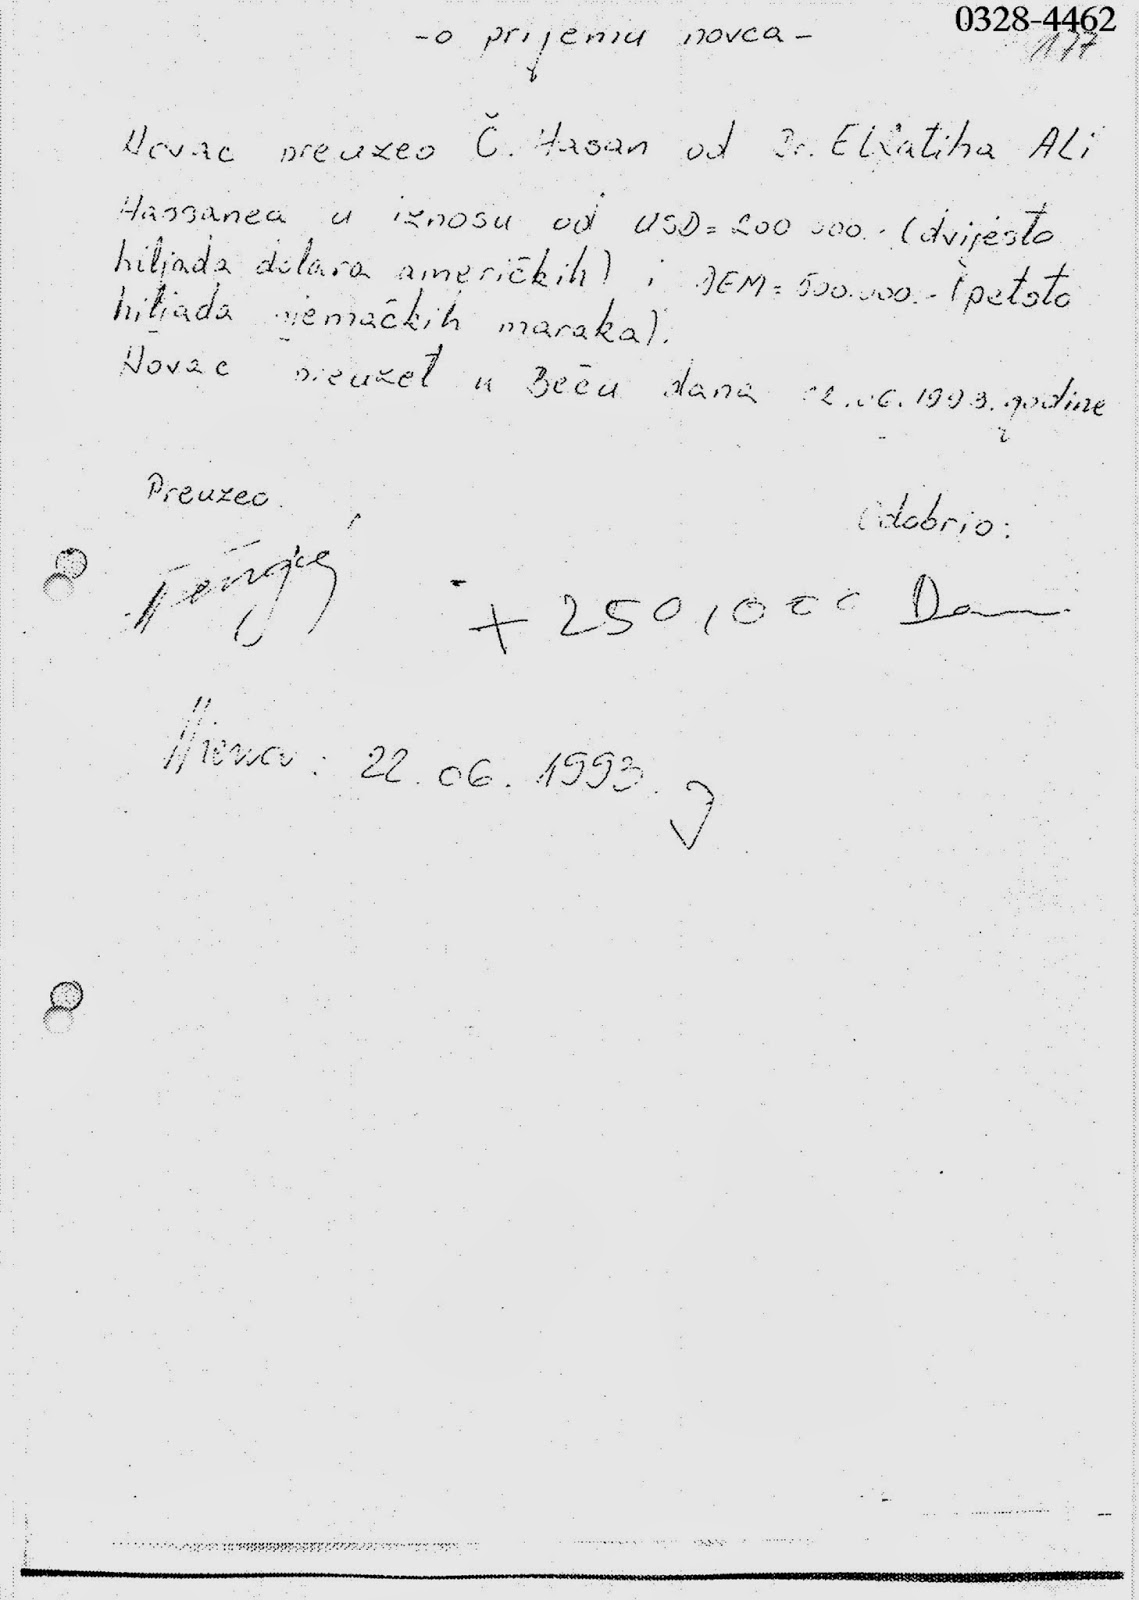 0328-4462
177
-o prijemu novca-
Novac preuzeo Č. Hasan od Dr. ElFatiha ALi
Hassanea u iznosu od USD=200 000.- (dvijesto
hiljada dolara američkih) i DEM=500.000.- (petsto
hiljada njemačkih maraka).
Novac preuzet u Beču dana 22.06.1993. godine
Preuzeo
Odobrio:
+ 250,000 Dem
Wiena: 22.06.1993.